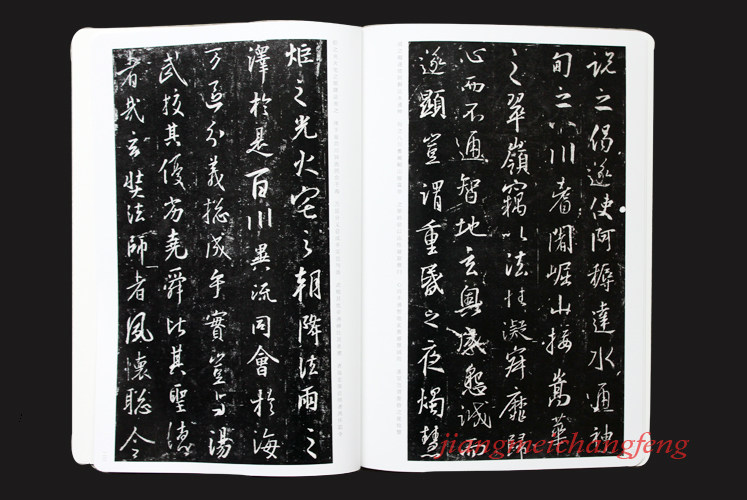 說之偈遂使阿耨達水通神
甸之八川耆闍崛山接嵩華
之翠嶺竊以法性凝寂靡歸
心而不通智地玄奧感懇誠而
遂顯豈謂重昏之夜燭慧
炬之光火宅之朝降法雨之
澤於是百川異流同會於海
万區分義總成乎實豈与湯
武校其優劣堯舜比其聖德
者哉玄奘法師者夙懷聰令
jiangmeichangfeng